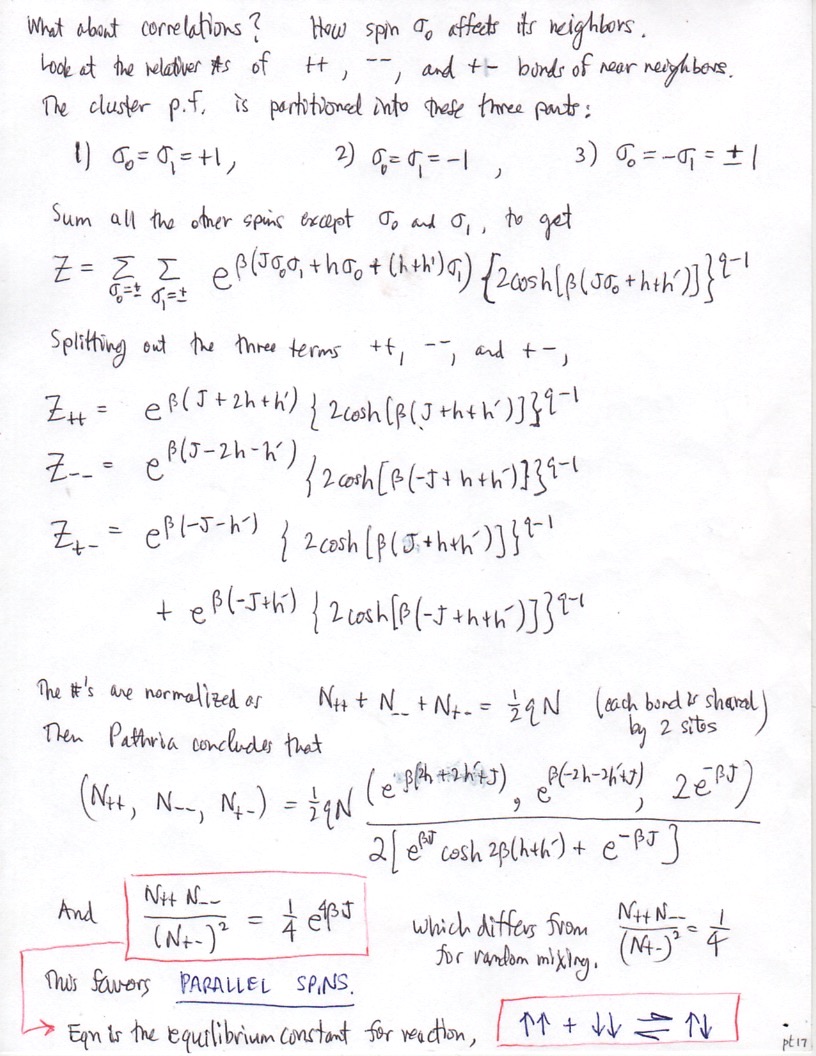 What about correlations? How spin σ₀ affects its neighbors.
Look at the relative #s of ++, --, and +- bonds of near neighbors.
The cluster p.f. is partitioned into these three parts:
1) σ₀ = σ₁ = +1, 2) σ₀ = σ₁ = -1, 3) σ₀ = -σ₁ = ±1
Sum all the other spins except σ₀ and σ₁, to get
Z = Σ_{σ₀=±} Σ_{σ₁=±} e^{β(Jσ₀σ₁+hσ₀+(h+h')σ₁)} {2cosh[β(Jσ₀+h+h')]}^{q-1}
Splitting out the three terms ++, --, and +-,
Z₊₊ = e^{β(J+2h+h')} {2cosh[β(J+h+h')]}^{q-1}
Z₋₋ = e^{β(J-2h-h')} {2cosh[β(-J+h+h')]}^{q-1}
Z₊₋ = e^{β(-J-h')} {2cosh[β(J+h+h')]}^{q-1}
+ e^{β(-J+h')} {2cosh[β(-J+h+h')]}^{q-1}
The #'s are normalized as N₊₊ + N₋₋ + N₊₋ = ½qN (each bond is shared
by 2 sites)
Then Pathria concludes that
(N₊₊, N₋₋, N₊₋) = ½qN (e^{β(2h+2h'+J)}, e^{β(-2h-2h'+J)}, 2e^{-βJ}) / 2[e^{βJ} cosh 2β(h+h') + e^{-βJ}]
And N₊₊ N₋₋ / (N₊₋)² = ¼ e^{4βJ} which differs from N₊₊N₋₋ / (N₊₋)² = ¼
for random mixing.
This favors PARALLEL SPINS.
Eqn is the equilibrium constant for reaction, ↑↑ + ↓↓ ⇌ ↑↓
pt17